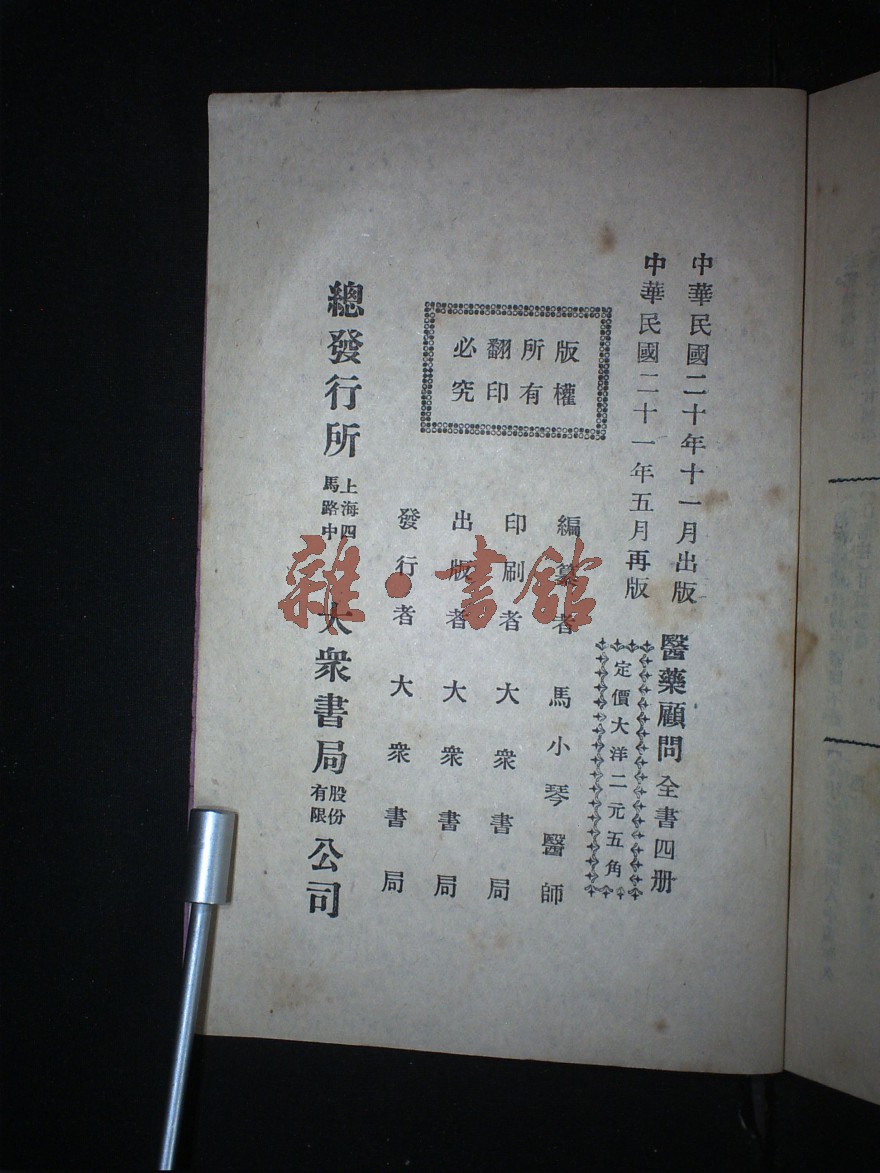 中華民國二十年十一月出版
中華民國二十一年五月再版
醫藥顧問 全書四册
定價大洋二元五角
版權
所有
翻印
必究
編纂者 馬小琴醫師
印刷者 大衆書局
出版者 大衆書局
發行者 大衆書局
總發行所 上海四馬路中 大衆書局 股份有限 公司
雜·書館